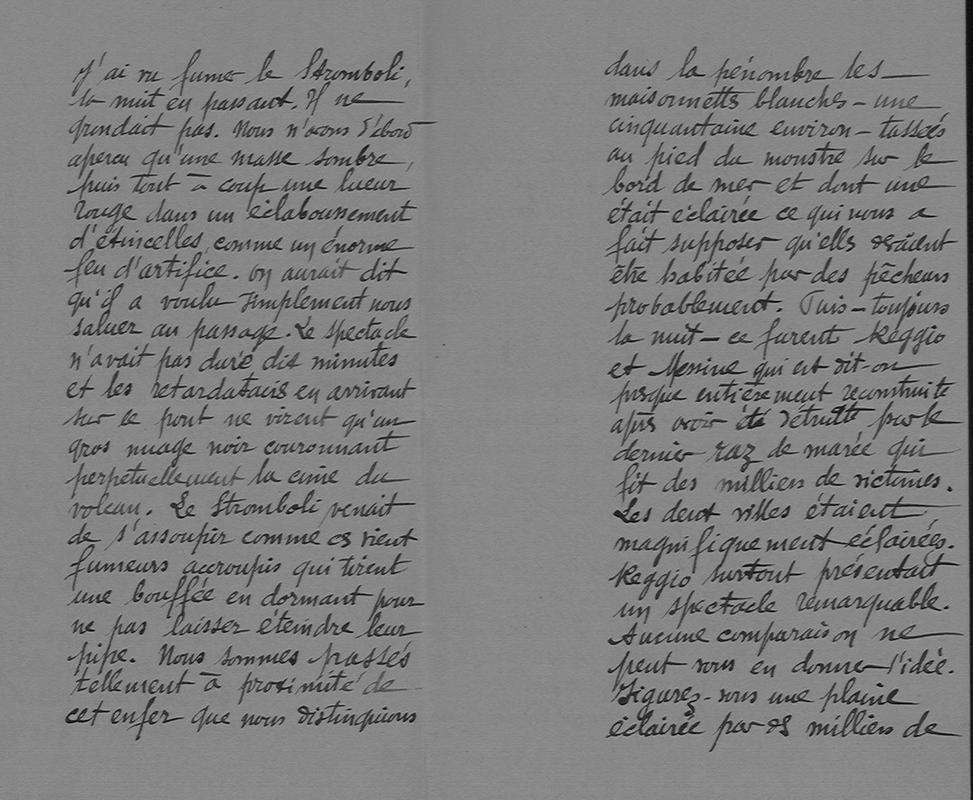 J'ai vu fumer le Stromboli,
la nuit en passant. Il ne
grondait pas. Nous n'avons d'abord
aperçu qu'une masse sombre,
puis tout à coup une lueur
rouge dans un éclaboussement
d'étincelles, comme un énorme
feu d'artifice. On aurait dit
qu'il a voulu simplement nous
saluer au passage. Le spectacle
n'avait pas duré dix minutes
et les retardataires en arrivant
sur le pont ne virent qu'un
gros nuage noir couronnant
perpétuellement la cime du
volcan. Le Stromboli venait
de s'assoupir comme ces vieux
fumeurs accroupis qui tirent
une bouffée en dormant pour
ne pas laisser éteindre leur
pipe. Nous sommes passés
tellement à proximité de
cet enfer que nous distinguions
dans la pénombre les
maisonnettes blanches - une
cinquantaine environ - tassées
au pied du monstre sur le
bord de mer et dont une
était éclairée ce qui nous a
fait supposer qu'elles devaient
être habitée par des pêcheurs
probablement. Puis - toujours
la nuit - ce furent Reggio
et Messine qui est dit-on
presque entièrement reconstruite
après avoir été détruite par le
dernier raz de marée qui
fit des milliers de victimes.
Les deux villes étaient
magnifiquement éclairées.
Reggio surtout présentait
un spectacle remarquable.
Aucune comparaison ne
peut vous en donner l'idée.
Figurez-vous une plaine
éclairée par des milliers de